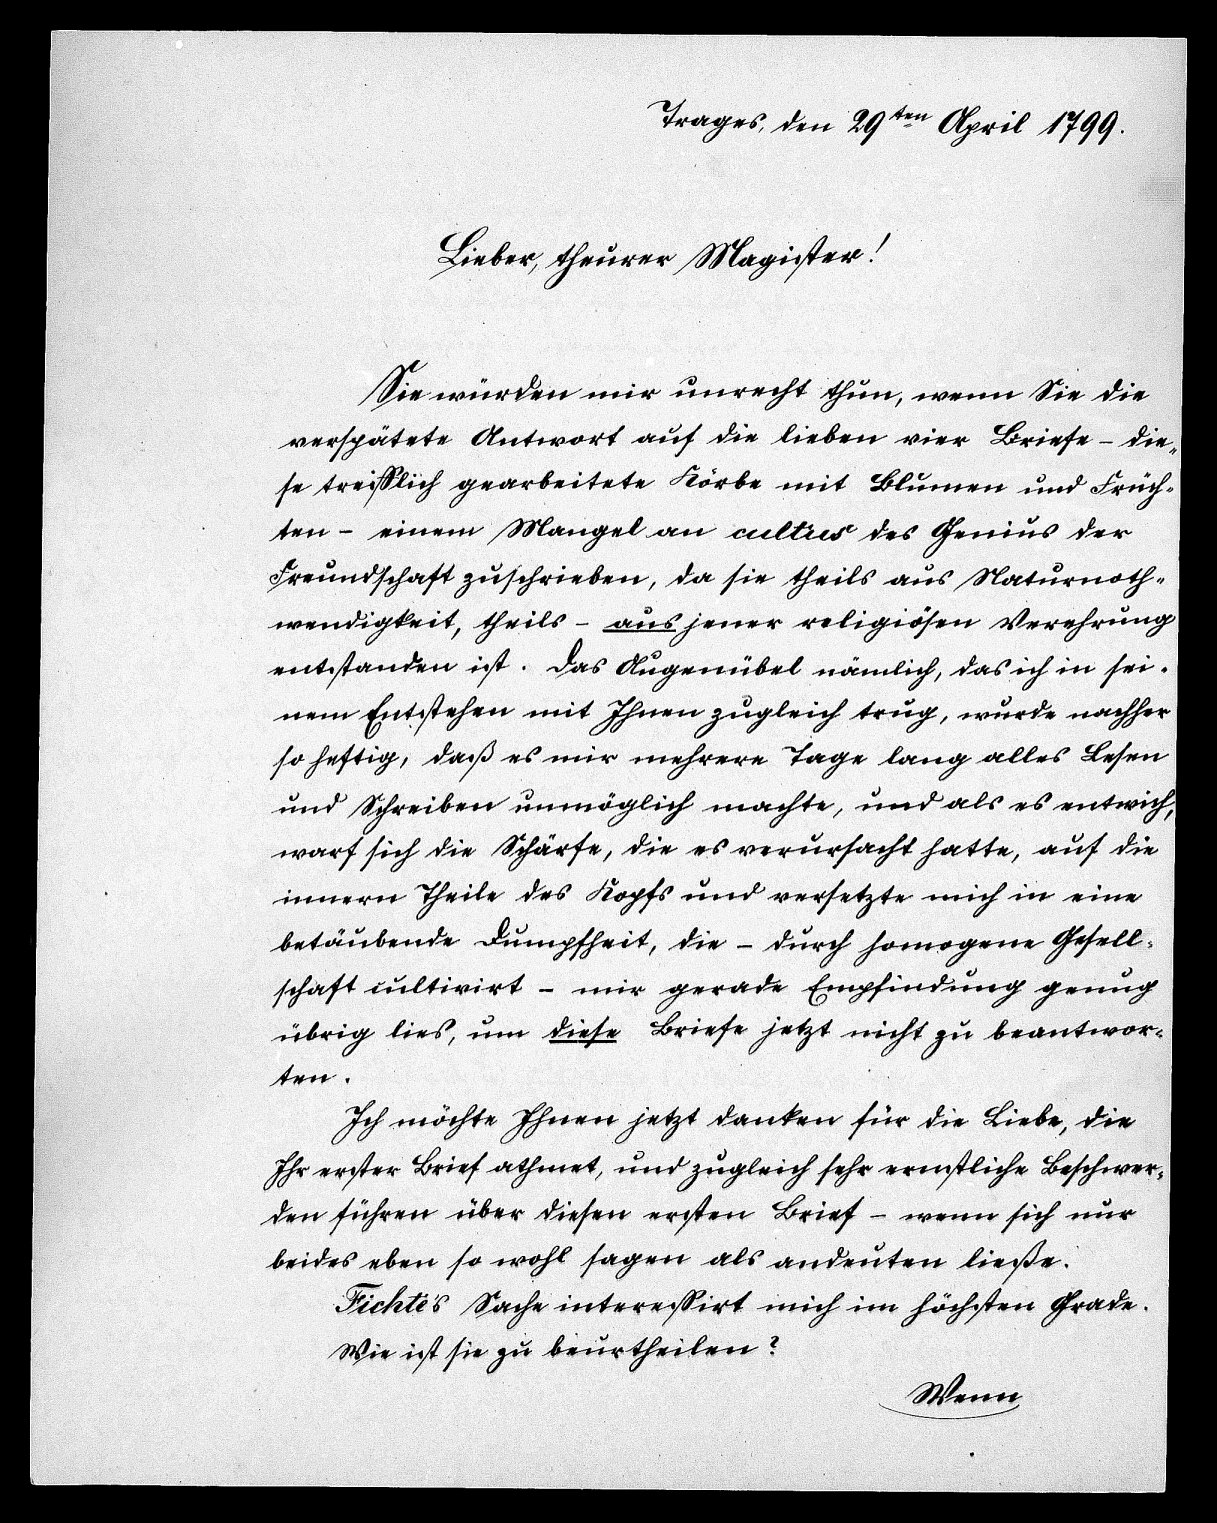 Trages, den 29ten April 1799.
Lieber, theurer Magister!
Sie würden mir unrecht thun, wenn Sie die
verspätete Antwort auf die lieben vier Briefe – die„
se treifflich gearbeitete Körbe mit Blumen und Früch„
ten – einem Mangel an cultus des Genius der
Freundschaft zuschrieben, da sie theils aus Naturnoth„
wendigkeit, theils – aus jener religiösen Verehrung
entstanden ist. Das Augenübel nämlich, das ich in sei„
nem Entstehen mit Ihnen zugleich trug, wurde nachher
so heftig, daß es mir mehrere Tage lang alles Lesen
und Schreiben unmöglich machte, und als es entwich,
warf sich die Schärfe, die es verursacht hatte, auf die
innern Theile des Kopfs und versetzte mich in eine
betäubende Dumpfheit, die – durch homogene Gesell„
schaft cultivirt – mir gerade Empfindung genug
übrig lies, um diese Briefe jetzt nicht zu beantwor„
ten.
Ich möchte Ihnen jetzt danken für die Liebe, die
Ihr erster Brief athmet, und zugleich sehr ernstliche Beschwer„
den führen über diesen ersten Brief – wenn sich nur
beides eben so wohl sagen als andeuten ließe.
Fichte's Sache interessirt mich im höchsten Grade.
Wie ist sie zu beurtheilen?
Wenn